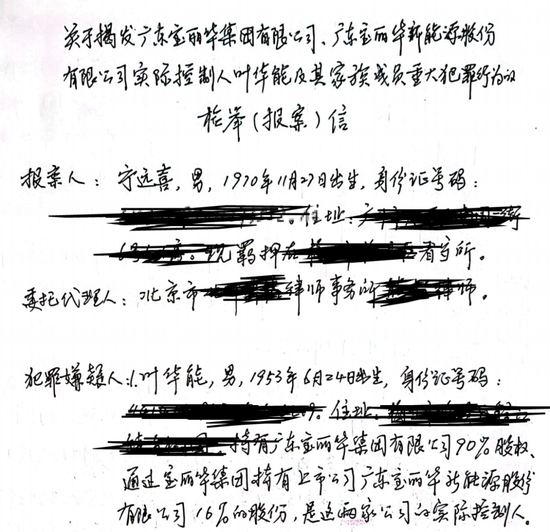 关于揭发广东宝丽华集团有限公司、广东宝丽华新能源股份
有限公司实际控制人叶华能及其家族成员重大犯罪行为的
检举(报案)信
报案人：宁远喜，男，1970年11月27日出生，身份证号码：
。住址：
。现羁押在 看守所。
委托代理人：北京市 律师事务所 律师。
犯罪嫌疑人：1.叶华能，男，1953年6月24日出生，身份证号码：
。住址
，持有广东宝丽华集团有限公司90%股权、
通过宝丽华集团持有上市公司广东宝丽华新能源股份
有限公司16%的股份，是这两家公司的实际控制人。